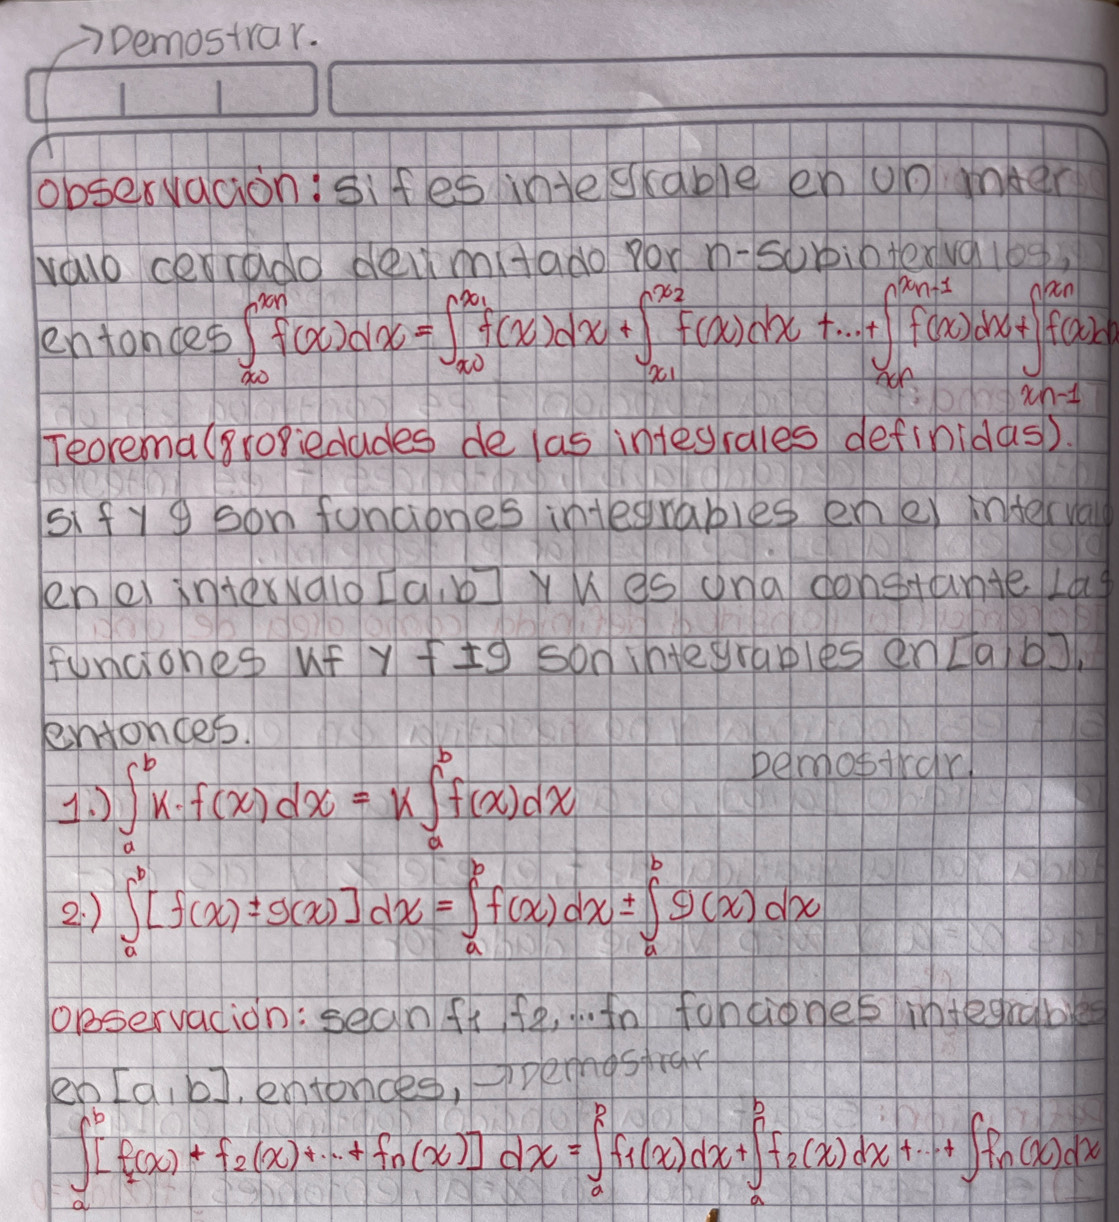 →Demostrar.
Observación: si f es integrable en un inter
valo cerrado delimitado por n-subintervalos,
entonces ∫_{x0}^{xn} f(x)dx = ∫_{x0}^{x1} f(x)dx + ∫_{x1}^{x2} f(x)dx +...+ ∫_{xn}^{xn-1} f(x)dx + ∫_{xn-1}^{xn} f(x)d
Teorema (propiedades de las integrales definidas).
si f y g son funciones integrables en el interval
en el intervalo [a,b] y K es una constante Las
funciones Kf y f ± g son integrables en [a,b],
entonces.
Demostrar.
1.) ∫_a^b K·f(x)dx = K ∫_a^b f(x)dx
2.) ∫_a^b [f(x) ± g(x)]dx = ∫_a^b f(x)dx ± ∫_a^b g(x)dx
Observación: sean f1, f2,...fn funciones integrables
en [a,b], entonces, →Demostrar
∫_a^b [f1(x) + f2(x)+...+ fn(x)] dx = ∫_a^b f1(x)dx + ∫_a^b f2(x)dx +...+ ∫fn(x)dx